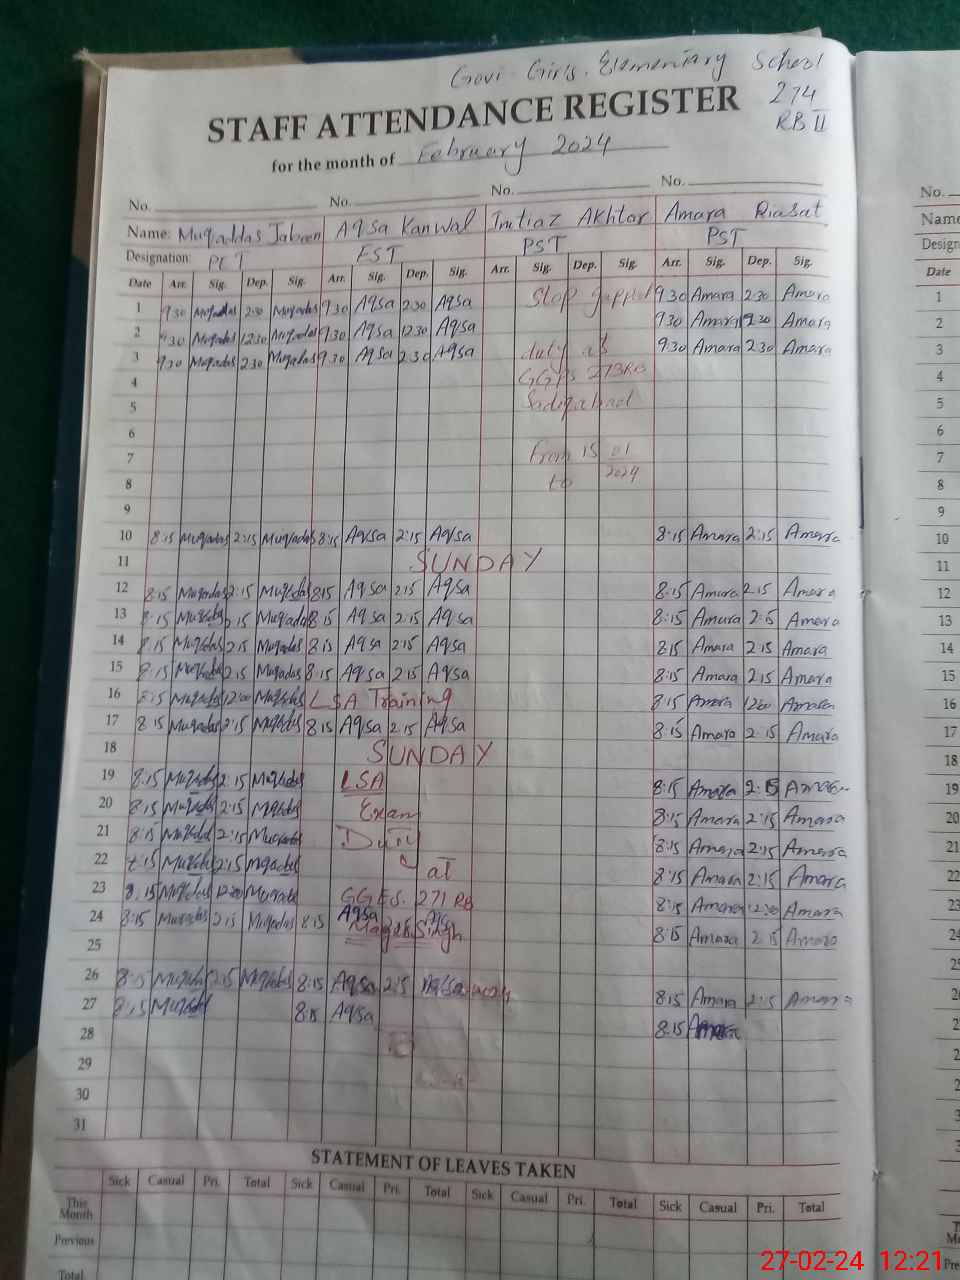 Govt. Girls. Elementary School
274
RB II
STAFF ATTENDANCE REGISTER
for the month of February 2024
No. No. No. No.
Name: Muqaddas Jabeen Aqsa Kanwal Imtiaz Akhtar Amara Riasat
Designation: EST PST PST
Date Arr. Sig. Dep. Sig. Arr. Sig. Dep. Sig. Arr. Sig. Dep. Sig. Arr. Sig. Dep. Sig.
1 9:30 Muqadas 2:30 Muqadas 9:30 Aqsa 2:30 Aqsa Stop 9:30 Amara 2:30 Amara
2 9:30 Muqadas 12:30 Muqadas 9:30 Aqsa 12:30 Aqsa 9:30 Amara Amara
3 9:30 Muqadas 2:30 Muqadas 9:30 Aqsa 2:30 Aqsa duty at 9:30 Amara 2:30 Amara
4 GGPS 273RB
5
6
7 From 15 01
8 to 2024
9
10 8:15 Muqadas 2:15 Muqadas 8:15 Aqsa 2:15 Aqsa 8:15 Amara 2:15 Amara
11 SUNDAY
12 8:15 Muqadas 2:15 Muqadas 8:15 Aqsa 2:15 Aqsa 8:15 Amara 2:15 Amara
13 8:15 Muqadas 2:15 Muqadas 8:15 Aqsa 2:15 Aqsa 8:15 Amara 2:15 Amara
14 8:15 Muqadas 2:15 Muqadas 8:15 Aqsa 2:15 Aqsa 8:15 Amara 2:15 Amara
15 8:15 Muqadas 2:15 Muqadas 8:15 Aqsa 2:15 Aqsa 8:15 Amara 2:15 Amara
16 8:15 Muqadas 12:00 Muqadas LSA Training 8:15 Amara 12:00 Amara
17 8:15 Muqadas 2:15 Muqadas 8:15 Aqsa 2:15 Aqsa 8:15 Amara 2:15 Amara
18 SUNDAY
19 8:15 Muqadas 2:15 Muqadas LSA 8:15 Amara 2:15 Amara
20 8:15 Muqadas 2:15 Muqadas Exam 8:15 Amara 2:15 Amara
21 8:15 Muqadas 2:15 Muqadas Duty 8:15 Amara 2:15 Amara
22 8:15 Muqadas 2:15 Muqadas at 8:15 Amara 2:15 Amara
23 8:15 Muqadas 12:00 Muqadas GGES. 271 RB 8:15 Amara Amara
24 8:15 Muqadas 2:15 Muqadas 8:15 Aqsa Singh 8:15 Amara 2:15 Amara
25
26 8:15 Muqadas 2:15 Muqadas 8:15 Aqsa 2:15 Aqsa 8:15 Amara 2:15 Amara
27 8:15 Muqadas 8:15 Aqsa 8:15 Amara
28
29
30
31
STATEMENT OF LEAVES TAKEN
Sick Casual Pri. Total Sick Casual Pri. Total Sick Casual Pri. Total Sick Casual Pri. Total
This Month
Previous
Total
No.
Name
Design
Date
1
2
3
4
5
6
7
8
9
10
11
12
13
14
15
16
17
18
19
20
21
22
23
24
27-02-24 12:21